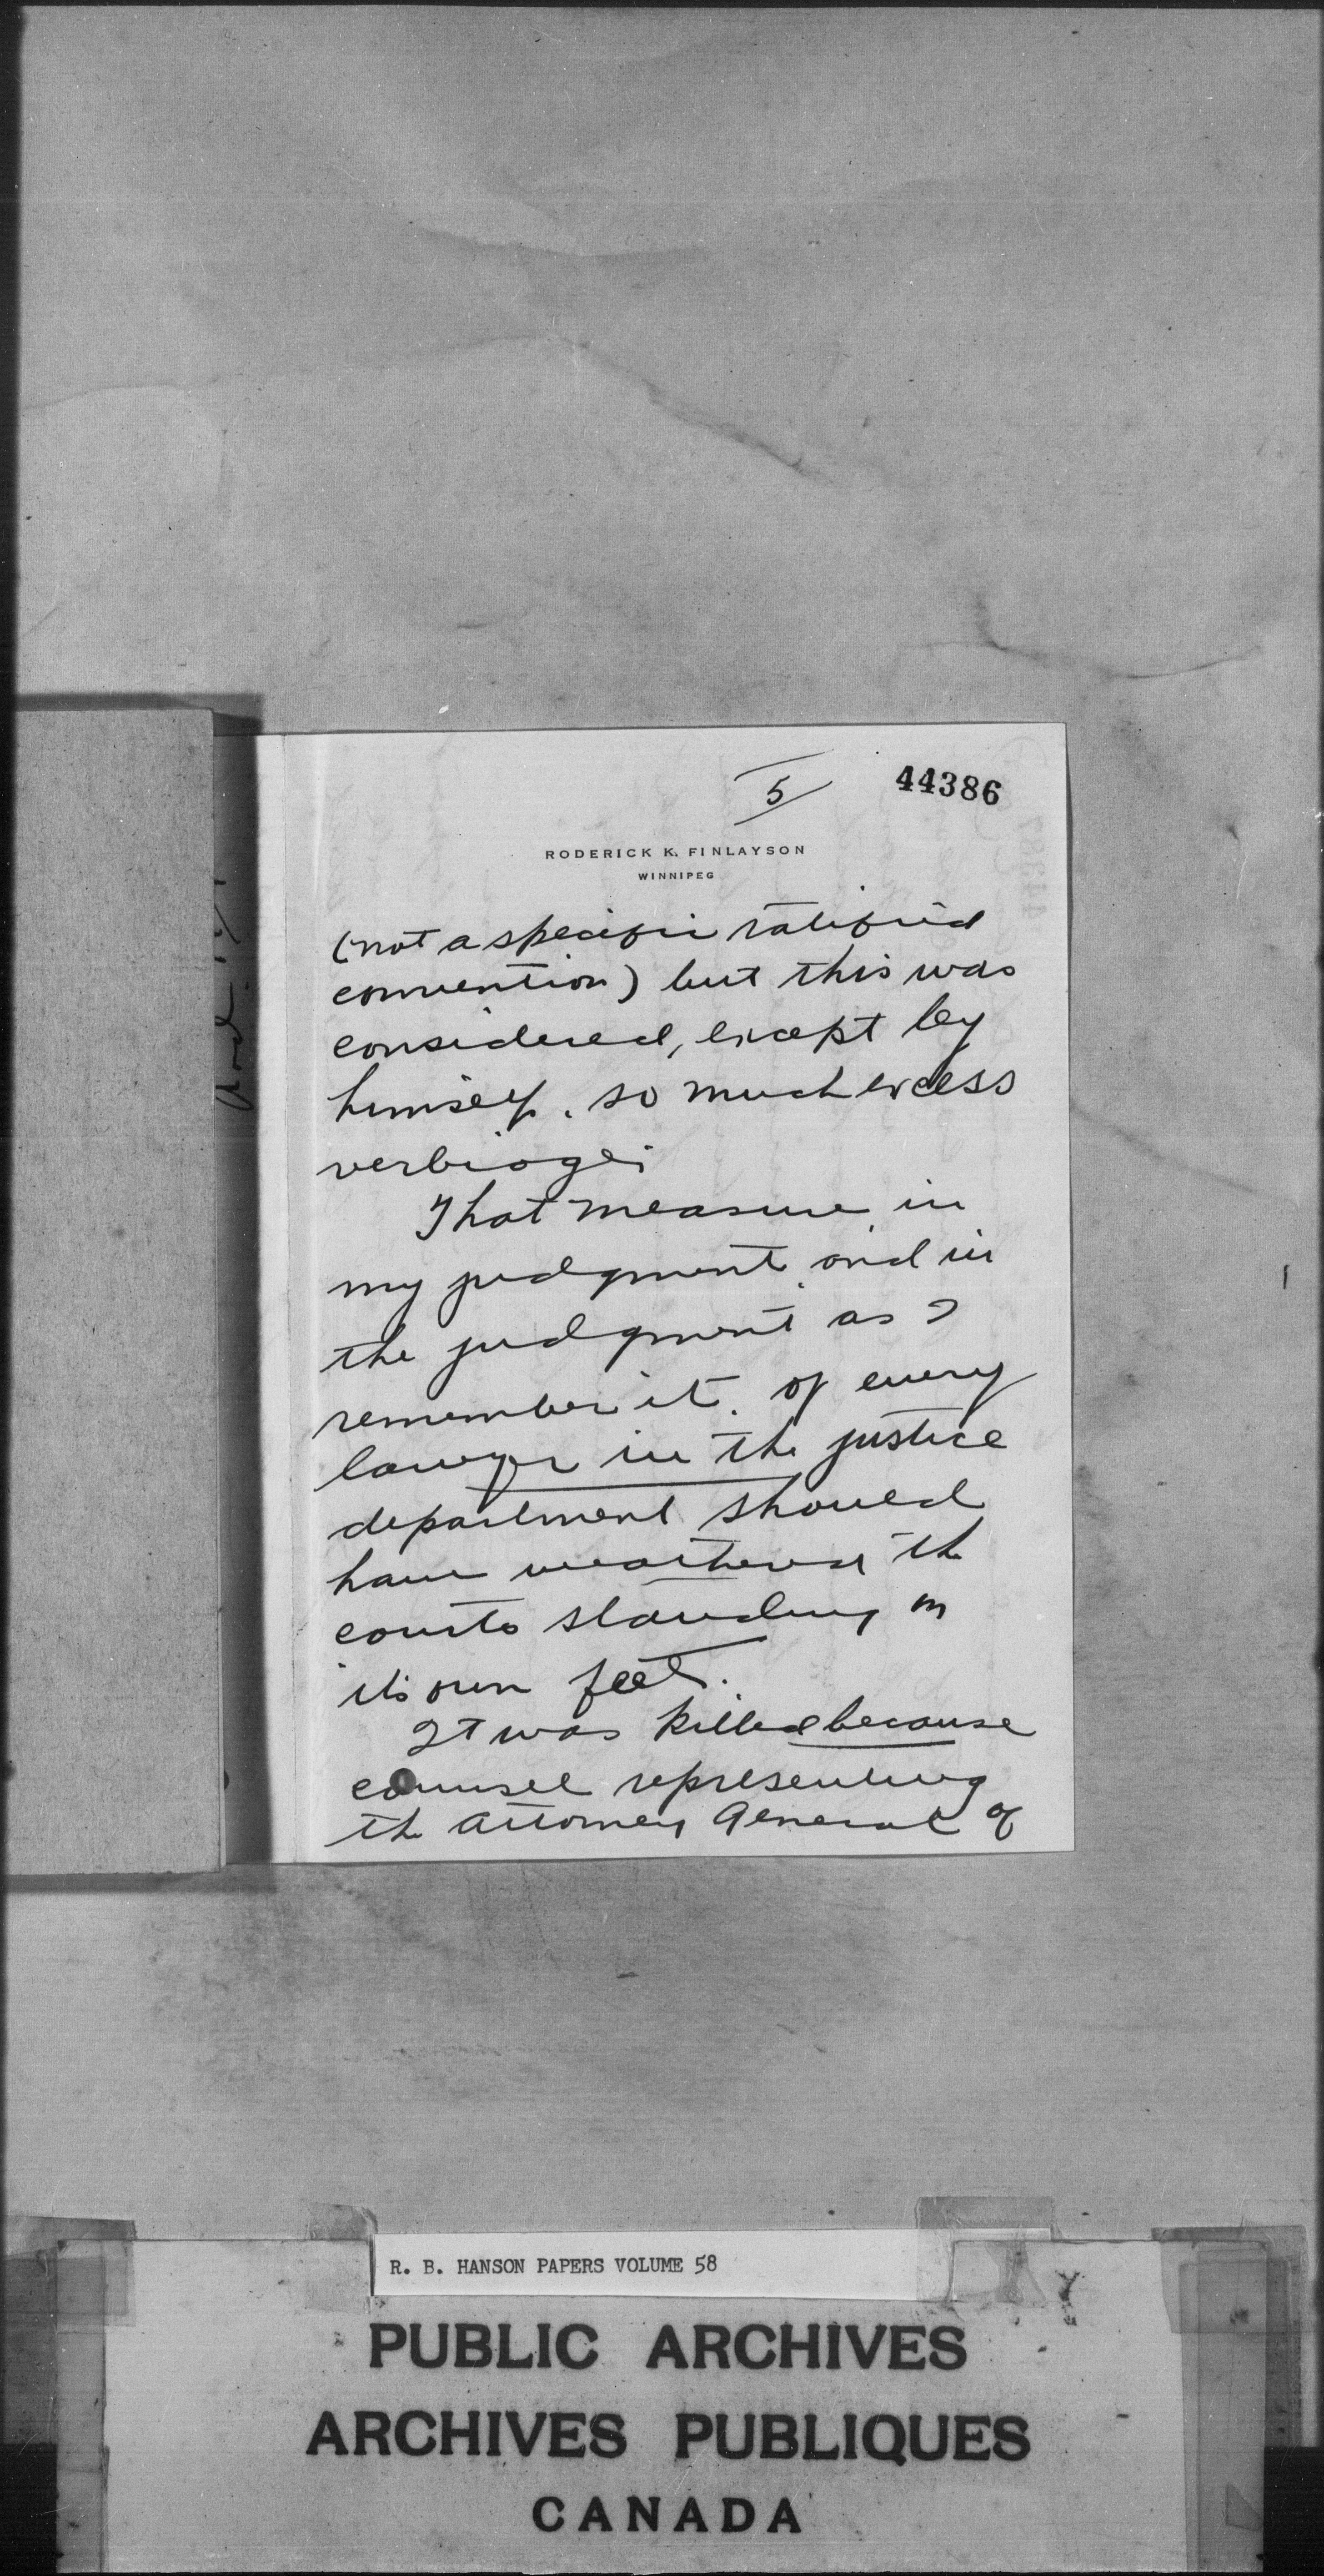 5
44386
RODERICK K. FINLAYSON
WINNIPEG
(not a specific ratified
convention) but this was
considered, except by
himself, so much excess
verbiage.
That measure, in
my judgment, and in
the judgment as I
remember it, of every
lawyer in the justice
department should
have weathered the
courts standing on
its own feet.
It was killed because
counsel representing
the Attorney General of
R. B. HANSON PAPERS VOLUME 58
PUBLIC ARCHIVES
ARCHIVES PUBLIQUES
CANADA